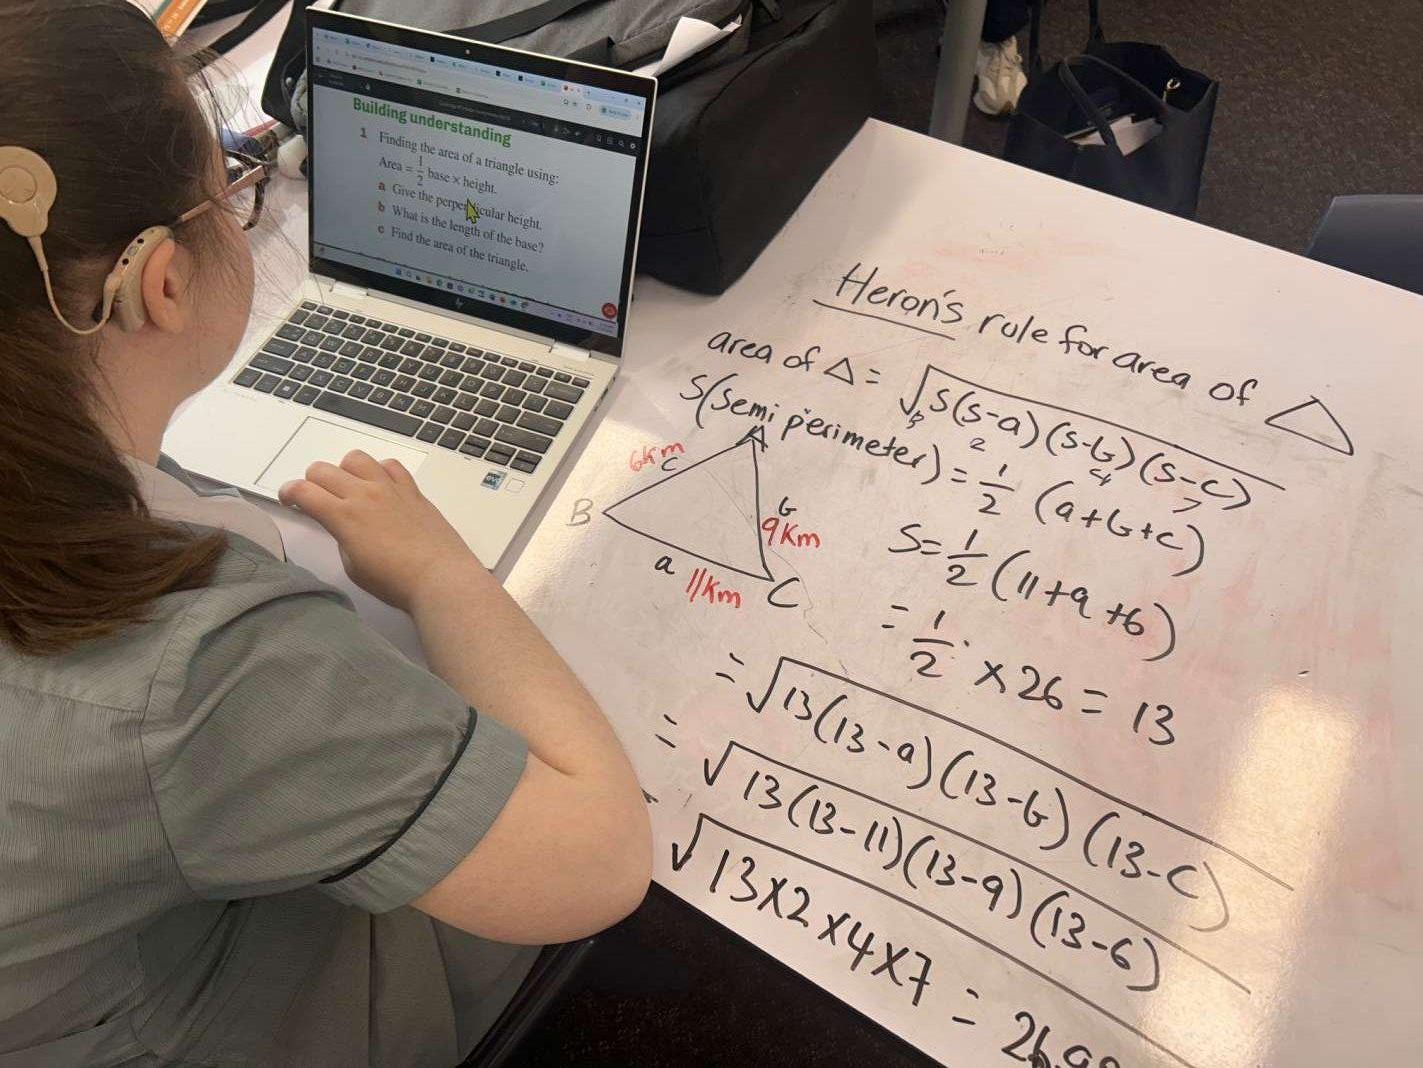 Building understanding
1 Finding the area of a triangle using:
Area = 1/2 base × height.
a Give the perpendicular height.
b What is the length of the base?
c Find the area of the triangle.
Heron's rule for area of △
area of △ = √s(s-a)(s-b)(s-c)
S(semi perimeter) = 1/2 (a+b+c)
A
6km
c
B
b
9km
a 11km C
S= 1/2 (11+9+6)
= 1/2 × 26 = 13
= √13(13-a)(13-b)(13-c)
= √13(13-11)(13-9)(13-6)
√13×2×4×7 =